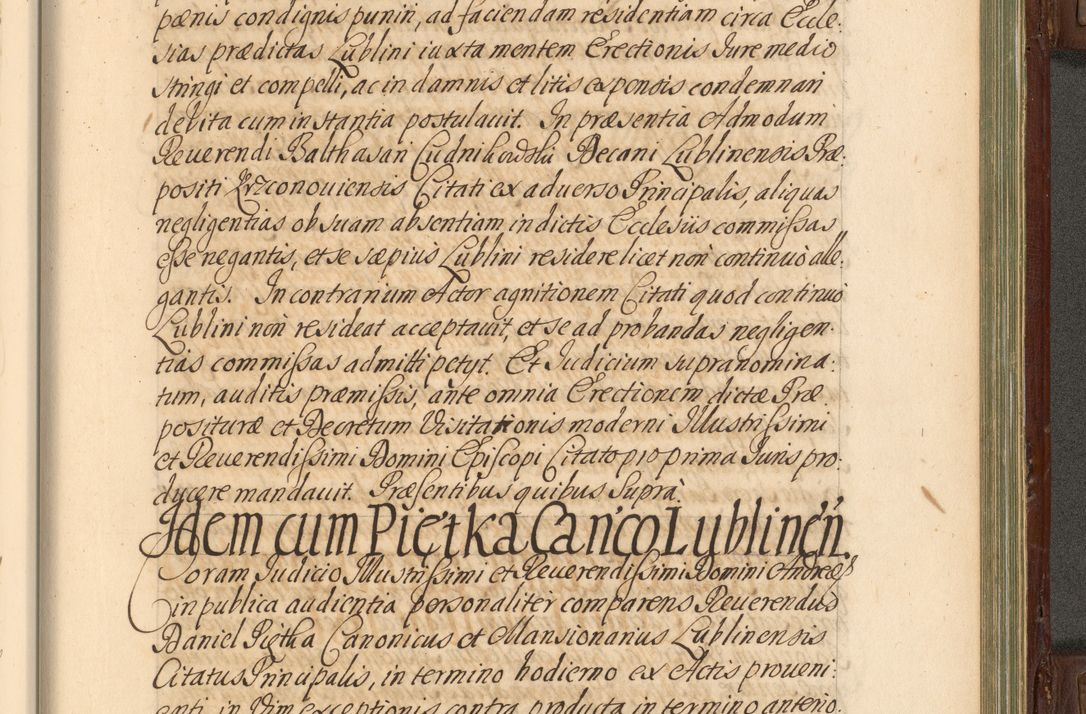 pænis condignis puniri, ad faciendam residentiam circa Eccle:
sias prædictas Lublini iuxta mentem Erectionis Iure medio
stringi et compelli, ac in damnis et litis expensis condemnari
debita cum instantia postulauit. In præsentia Admodum
Reuerendi Balthasari Cudnikowski Decani Lublinensis Præ:
positi Krzconouiensis Citati ex aduerso Principalis, aliquas
negligentias ob suam absentiam in dictis Ecclesiis commissas
esse negantis, et se sæpius Lublini residere licet non continuò alle:
gantis. In contrarium Actor agnitionem Citati quod continuò
Lublini non resideat acceptauit, et se ad probandas negligen:
tias commissas admitti petyt. Et Iudicium supranomina:
tum, auditis præmissis, ante omnia Erectionem dictæ Præ
posituræ et Decretum Visitationis moderni Illustrissimi
et Reuerendissimi Domini Episcopi Citato pro prima Iuris pro:
ducere mandauit. Præsentibus quibus Suprà.
Idem cum Piętka Canco Lublinen.
Coram Iudicio Illustrissimi et Reuerendissimi Domini Andreæ
in publica audientia personaliter comparens Reuerendus
Daniel Piętka Canonicus et Mansionarius Lublinensis
Citatus Principalis, in termino hodierno ex Actis proueni:
enti, in Vim exceptionis contra producta in termino anterio: